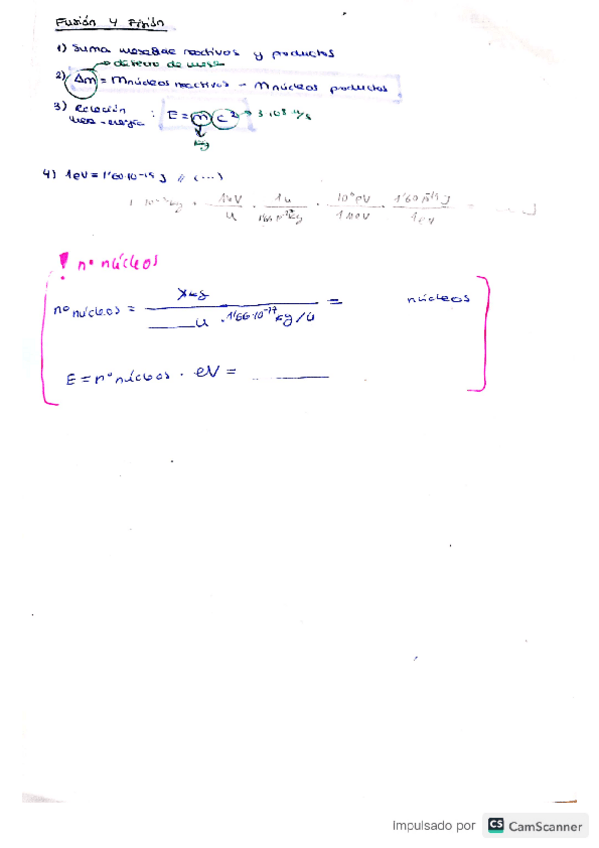 Fusión y Fisión
1) Suma masas reactivos y productos
→ defecto de masa
2) Δm = Mnúcleos reactivos - Mnúcleos productos
3) Relación masa-energía : E = m c² → 3·10⁸ m/s
kg
4) 1eV = 1'60·10⁻¹⁹ J // (...)
u · 1u · 10⁶eV · 1'60·10⁻¹⁹ J
u 1eV
! nº núcleos
nº núcleos = x kg / ____u · 1'66·10⁻²⁷ kg/u = núcleos
E = nº núcleos · eV = ____
Impulsado por CS CamScanner